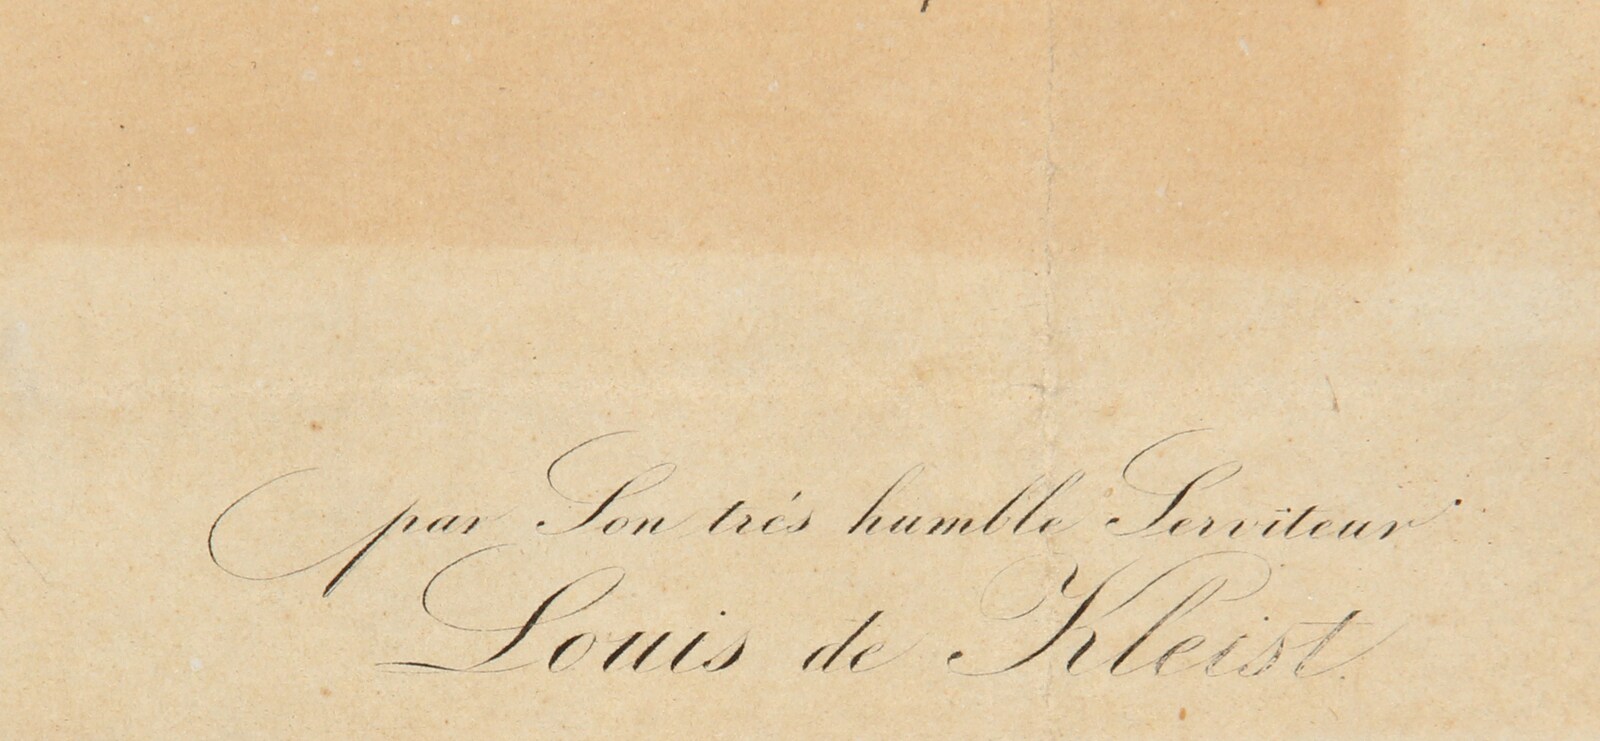 par Son trés humble Serviteur
Louis de Kleist.